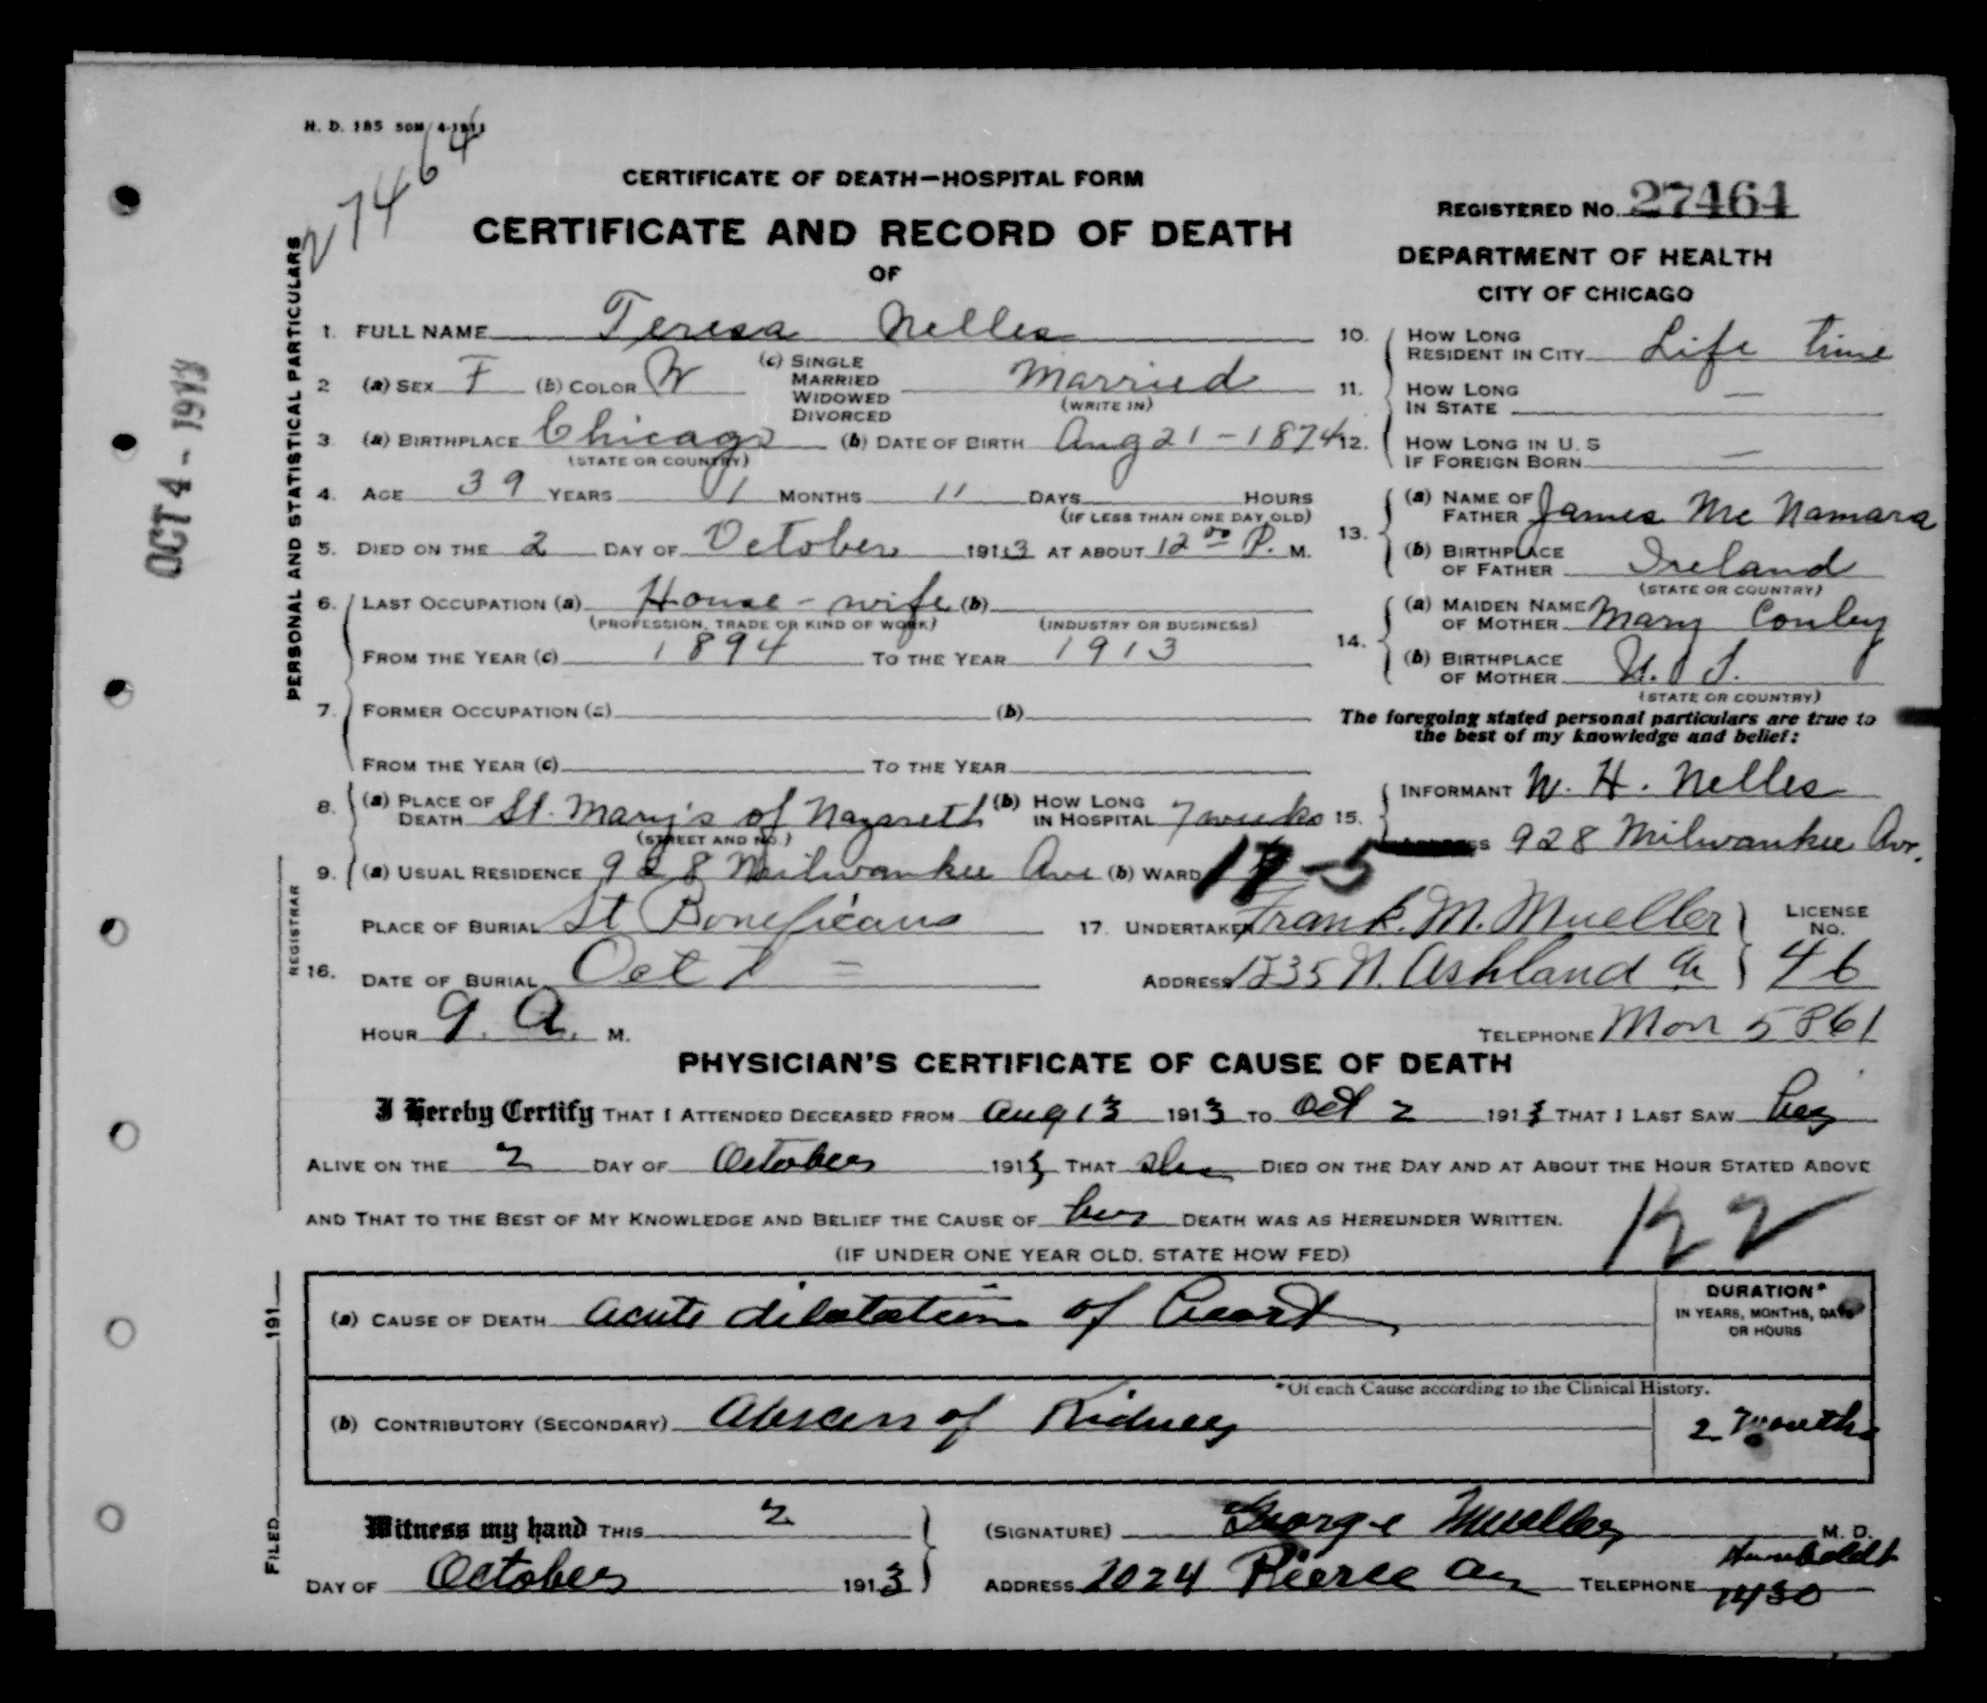 H. D. 185 50M 4-1911
27464
CERTIFICATE OF DEATH—HOSPITAL FORM
REGISTERED NO. 27464
CERTIFICATE AND RECORD OF DEATH
OF
DEPARTMENT OF HEALTH
CITY OF CHICAGO
OCT 4 - 1913
PERSONAL AND STATISTICAL PARTICULARS
1. FULL NAME Teresa Nelles
2 (a) SEX F (b) COLOR W (c) SINGLE MARRIED WIDOWED DIVORCED Married
(WRITE IN)
3. (a) BIRTHPLACE Chicago (b) DATE OF BIRTH Aug 21 - 1874
(STATE OR COUNTRY)
4. AGE 39 YEARS 1 MONTHS 11 DAYS HOURS
(IF LESS THAN ONE DAY OLD)
5. DIED ON THE 2 DAY OF October 1913 AT ABOUT 12 00 P. M.
6. LAST OCCUPATION (a) House-wife (b)
(PROFESSION, TRADE OR KIND OF WORK) (INDUSTRY OR BUSINESS)
FROM THE YEAR (c) 1894 TO THE YEAR 1913
7. FORMER OCCUPATION (a) (b)
FROM THE YEAR (c) TO THE YEAR
8. (a) PLACE OF DEATH St. Mary's of Nazareth (b) HOW LONG IN HOSPITAL 7 weeks
(STREET AND NO.)
9. (a) USUAL RESIDENCE 928 Milwaukee Ave (b) WARD
10. HOW LONG RESIDENT IN CITY Life time
11. HOW LONG IN STATE —
12. HOW LONG IN U. S IF FOREIGN BORN —
13. (a) NAME OF FATHER James Mc Namara
(b) BIRTHPLACE OF FATHER Ireland
(STATE OR COUNTRY)
14. (a) MAIDEN NAME OF MOTHER Mary Conley
(b) BIRTHPLACE OF MOTHER U. S.
(STATE OR COUNTRY)
The foregoing stated personal particulars are true to
the best of my knowledge and belief:
15. INFORMANT W. H. Nelles
928 Milwaukee Av.
REGISTRAR
16. PLACE OF BURIAL St Boneficaus
DATE OF BURIAL Oct
HOUR 9. A. M.
17. UNDERTAKER Frank. M. Mueller
ADDRESS 1235 N. Ashland Av
LICENSE NO.
46
TELEPHONE Mon 5861
PHYSICIAN'S CERTIFICATE OF CAUSE OF DEATH
I Hereby Certify THAT I ATTENDED DECEASED FROM Aug 13 1913 TO Oct 2 1913 THAT I LAST SAW her
ALIVE ON THE 2 DAY OF October 1913 THAT she DIED ON THE DAY AND AT ABOUT THE HOUR STATED ABOVE
AND THAT TO THE BEST OF MY KNOWLEDGE AND BELIEF THE CAUSE OF her DEATH WAS AS HEREUNDER WRITTEN.
(IF UNDER ONE YEAR OLD, STATE HOW FED)
(a) CAUSE OF DEATH Acute dilatation of heart
DURATION*
IN YEARS, MONTHS, DAYS
OR HOURS
*Of each Cause according to the Clinical History.
(b) CONTRIBUTORY (SECONDARY) Abscess of Kidney
2 Months
FILED 191
Witness my hand THIS 2
DAY OF October 1913
(SIGNATURE) George Mueller M. D.
ADDRESS 2024 Pierce Av TELEPHONE Humboldt
1430